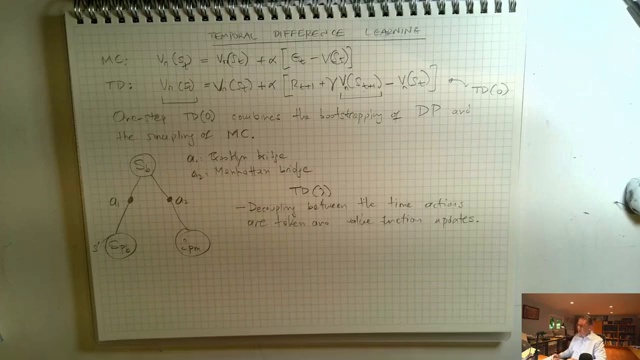 TEMPORAL DIFFERENCE LEARNING
MC: Vπ(St) = Vπ(St) + α [Gt − V(St)]
TD: Vπ(St) = Vπ(St) + α [Rt+1 + γ Vπ(St+1) − Vπ(St)]
TD(0)
One-step TD(0) combines the bootstrapping of DP and
the sampling of MC.
S0
a1: Brooklyn bridge
a2: Manhattan bridge
TD(λ)
a1
a2
− Decoupling between the time actions
are taken and value function updates.
2pm